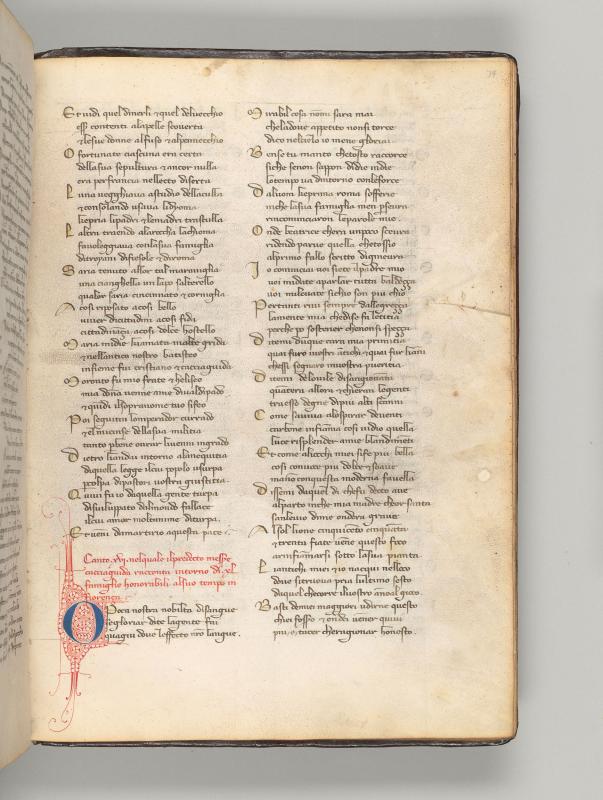 E t vidi quel dinerli e quel delvecchio
esser contenti alapelle scouerta
e lesue donne alfuso e alpennecchio
O fortunate ciascuna era certa
della sua sepultura e ancor nulla
era perfrancia nellecto diserta
L una vegghiava astudio dellaculla
e consolando usava lidioma
che pria lipadri e lemadri trastulla
L altra traendo alarocha lachioma
favoleggiava conlasua famiglia
ditroyani difiesole e diroma
S aria tenuto allor tal maraviglia
una cianghella un lapo salterello
qualor saria cincinnato e corniglia
A cosi riposato acosi bello
viver dicittadini acosi fida
cittadinanza acosi dolce hostello
M aria midie chiamata inalte grida
e nellantico nostro batisteo
insieme fui cristiano e cacciaguida
M oronto fu mio frate e heliseo
mia donna venne ame divaldipado
e quindi ilsopranome tuo sifeo
P oi seguitai lomperador currado
ed el mi cinse dellasua militia
tanto perbene ovrar livenni ingrado
D ietro liandai incontro alanequitia
diquella legge ilcui popolo usurpa
percolpa dipastori vostra giustitia
Q uivi fu io daquella gente turpa
disviluppato dalmondo fallace
ilcui amor moltanime diturpa
E t veni damartirio aquesta pace
Canto xvj. nelquale ilpredecto messer
cacciaguida racconta intorno di xl
famiglie honorabili alsuo tempo in
fiorença
O Poca nostra nobilta disangue
segloriar dite lagente fai
quagiu dove leffecto nostro langue .
M irabil cosa nonmi sara mai
che ladove appetito nonsi torce
dico nelcielo io mene gloriai
B en se tu manto chetosto raccorce
siche senon sappon didie indie
lotempo va dintorno conleforce
D alvoi cheprima roma sofferie
inche lasua famiglia men persevra
rincominciaron leparole mie
O nde beatrice chera unpoco scevra
ridendo parve quella chetossio
alprimo fallo scritto digenevra
I o cominciai voi siete ilpadre mio
voi midate aparlar tutta baldezza
voi milevate sichio son piu chio
P ertanti rivi sempie dallegrezza
lamente mia chedise fa letitia
perche puo sostener chenonsi spezza
D itemi dunque cara mia primitia
quai furo ivostri antichi e quai fur lianni
chessi segnaro invostra pueritia
D itemi delovile disangiovanni
quantera allora e chieran legenti
tra esse degne dipiu alti scanni
C ome saviva alospirar deventi
carbone infiamma cosi vidio quella
luce risplender amie blandimenti
E t come aliocchi miei sife piu bella
cosi convoce piu dolce e soave
manon conquesta moderna favella
D issemi daquel di chefu decto ave
alparto inche mia madre cheor santa
sallevio dime ondera grave
A lsol lione cinquecento cinquanta
e trenta fiate venne questo foco
arinfiammarsi sotto lasua pianta
L iantichi miei e io nacqui nelloco
dove sitruova pria lultimo sesto
daquel checorre ilvostro annual gioco
B asti demie maggiori udirne questo
chiei fosser e ondei vener quivi
piu e tacer cheragionar honesto .